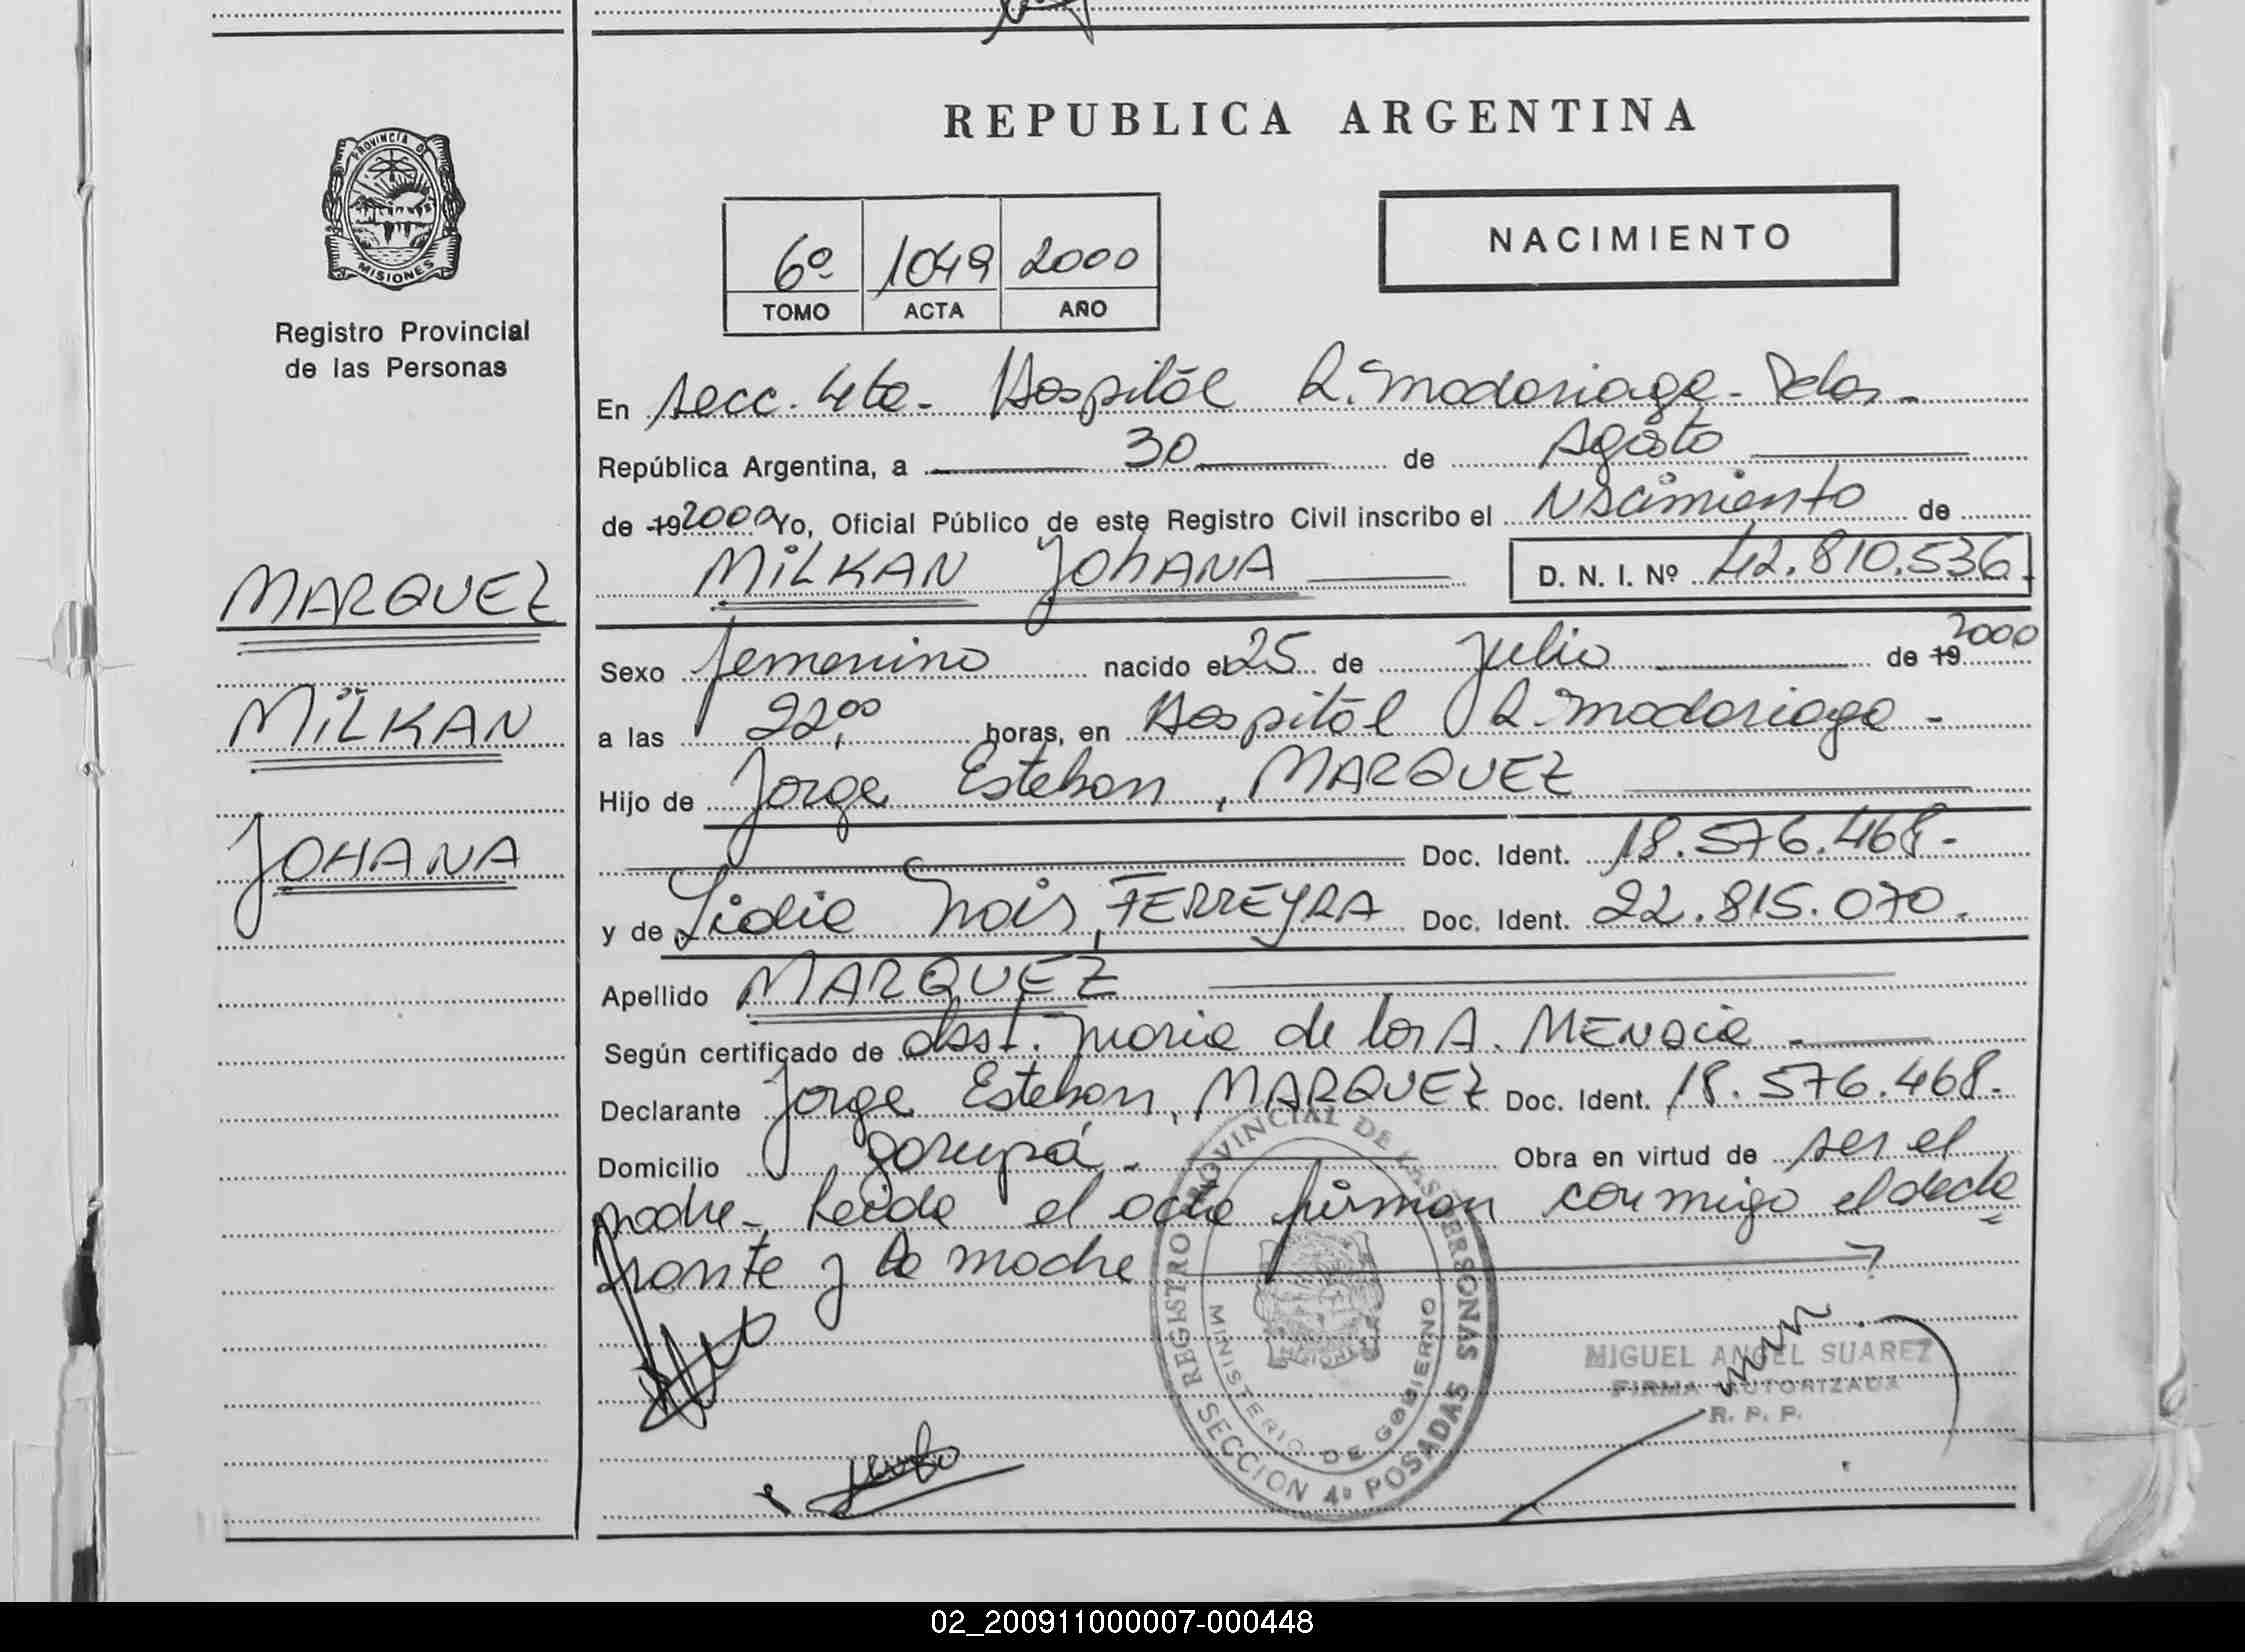 REPUBLICA ARGENTINA
PROVINCIA DE
MISIONES
Registro Provincial
de las Personas
NACIMIENTO
6º 1049 2000
TOMO ACTA AÑO
En secc. 4ta. Hospital R. Madariaga - Pdas.
República Argentina, a 30 de Agosto
de 19 2000 Yo, Oficial Público de este Registro Civil inscribo el Nacimiento de
MiLKAN JOhANA D. N. I. Nº 42.810.536.
MARQUEZ
MiLKAN
JOHANA
Sexo femenino nacido el 25 de Julio de 19 2000
a las 22,00 horas, en Hospital R. Madariaga -
Hijo de Jorge Esteban, MARQUEZ
Doc. Ident. 18.576.468.-
y de Lidia Inés, FERREYRA Doc. Ident. 22.815.070.
Apellido MARQUEZ
Según certificado de Obst. María de los A.
Declarante Jorge Esteban, MARQUEZ Doc. Ident. 18.576.468.-
Domicilio garupá. - Obra en virtud de ser el
padre - Leída el acta firman conmigo el decla
rante y la madre
REGISTRO PROVINCIAL DE LAS PERSONAS
MINISTERIO DE GOBIERNO
MISIONES
SECCION 4ª POSADAS
MIGUEL ANGEL SUAREZ
FIRMA AUTORIZADA
R. P. P.
02_200911000007-000448